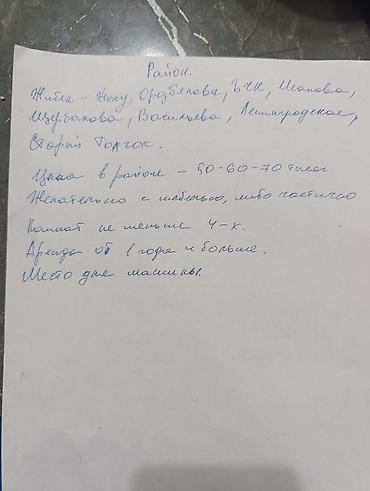 Район.
Жибек - Жолу, Орозбекова, БЧК, Исанова,
Щербакова, Васильева, Ленинградское,
Старый Толчок.
Цена в районе - 50-60-70 тысяч.
Желательно с мебелью, либо частично
Комнат не меньше 4-х.
Аренда от 1 года и больше.
Место для машины.